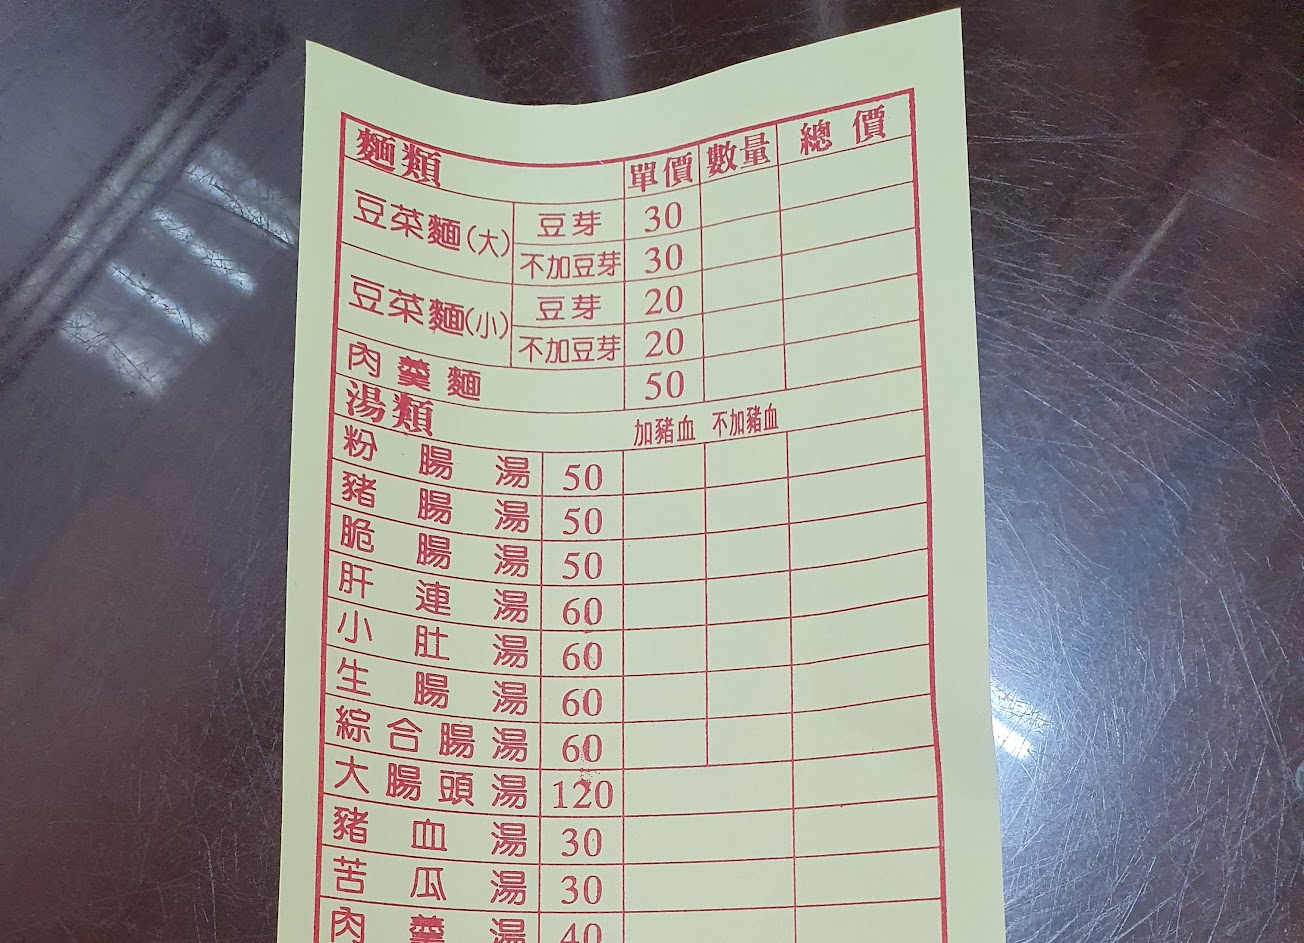 麵類 單價 數量 總價
豆菜麵(大) 豆芽 30
不加豆芽 30
豆菜麵(小) 豆芽 20
不加豆芽 20
肉羹麵 50
湯類 加豬血 不加豬血
粉腸湯 50
豬腸湯 50
脆腸湯 50
肝連湯 60
小肚湯 60
生腸湯 60
綜合腸湯 60
大腸頭湯 120
豬血湯 30
苦瓜湯 30
肉羹湯 40